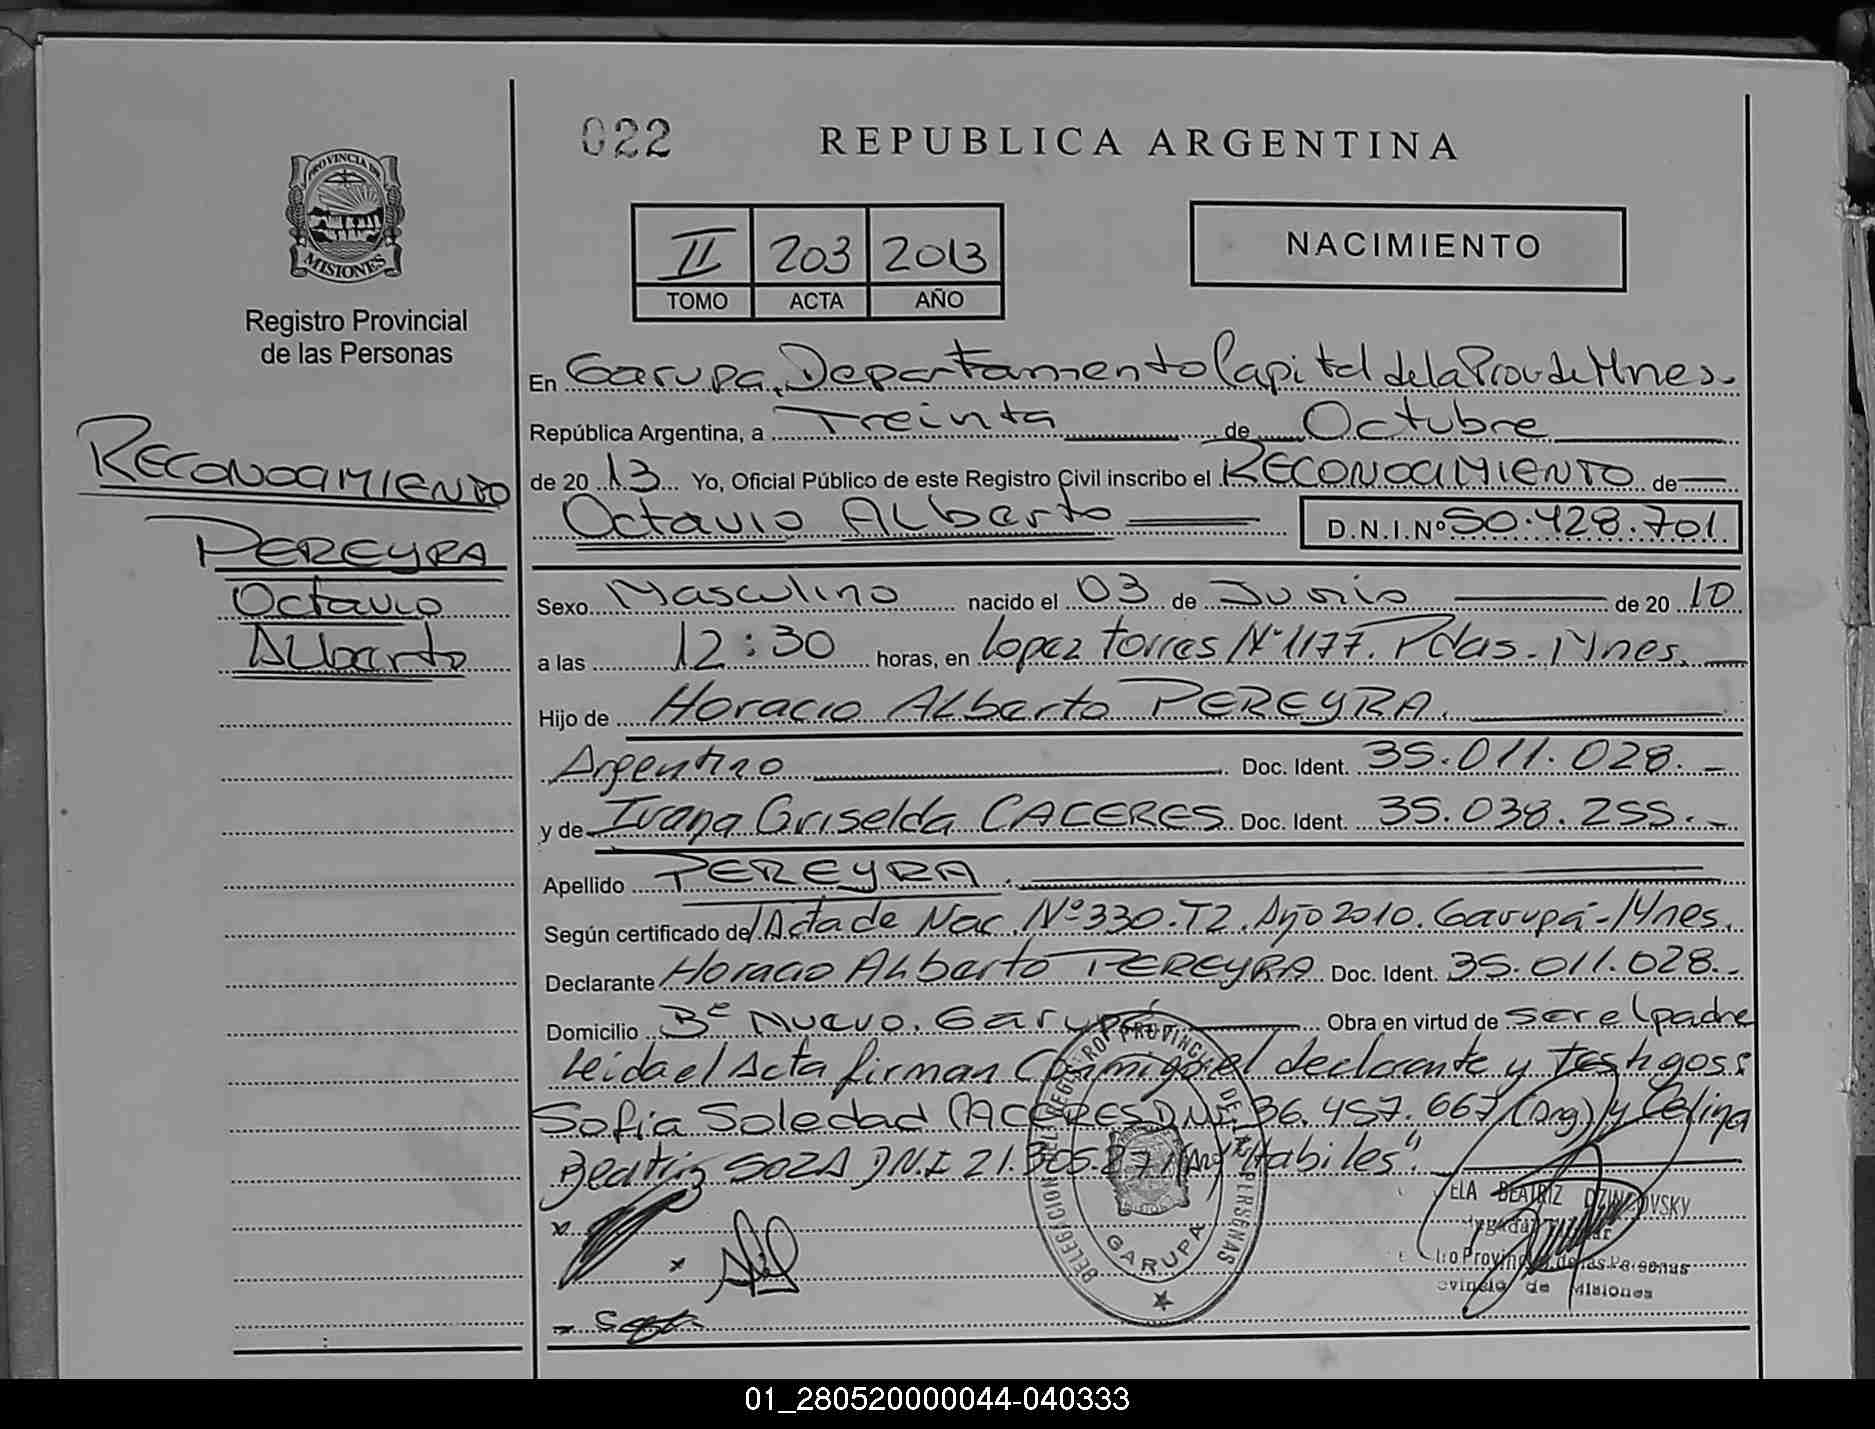 022
REPUBLICA ARGENTINA
PROVINCIA DE
MISIONES
Registro Provincial
de las Personas
II 203 2013
TOMO ACTA AÑO
NACIMIENTO
RECONOCIMIENTO
PEREYRA
Octavio
Alberto
En Garupa, Departamento Capital de la Prov de Mnes.
República Argentina, a Treinta de Octubre
de 2013 Yo, Oficial Público de este Registro Civil inscribo el RECONOCIMIENTO de
Octavio Alberto D.N.I.Nº 50.428.701
Sexo Masculino nacido el 03 de Junio de 2010
a las 12:30 horas, en Lopez Torres Nº 1177. Pdas. Mnes.
Hijo de Horacio Alberto PEREYRA.
Argentino Doc. Ident. 35.011.028.
y de Ivana Griselda CACERES Doc. Ident. 35.038.255.
Apellido PEREYRA.
Según certificado de Acta de Nac. Nº 330. T2. Año 2010. Garupá - Mnes.
Declarante Horacio Alberto PEREYRA Doc. Ident. 35.011.028.
Domicilio Bº Nuevo. Garupá Obra en virtud de ser el padre
Leida el Acta firman Conmigo el declarante y testigos:
Sofia Soledad CACERES DNI 36.457.667 (Arg) y Celina
Beatriz SOZA DN.I 21.305. "Habiles".
DELEGACION DEL REGISTRO PROVINCIAL DE LAS PERSONAS
GARUPA
ELA BEATRIZ
Provincial de las Personas
de Misiones
01_280520000044-040333